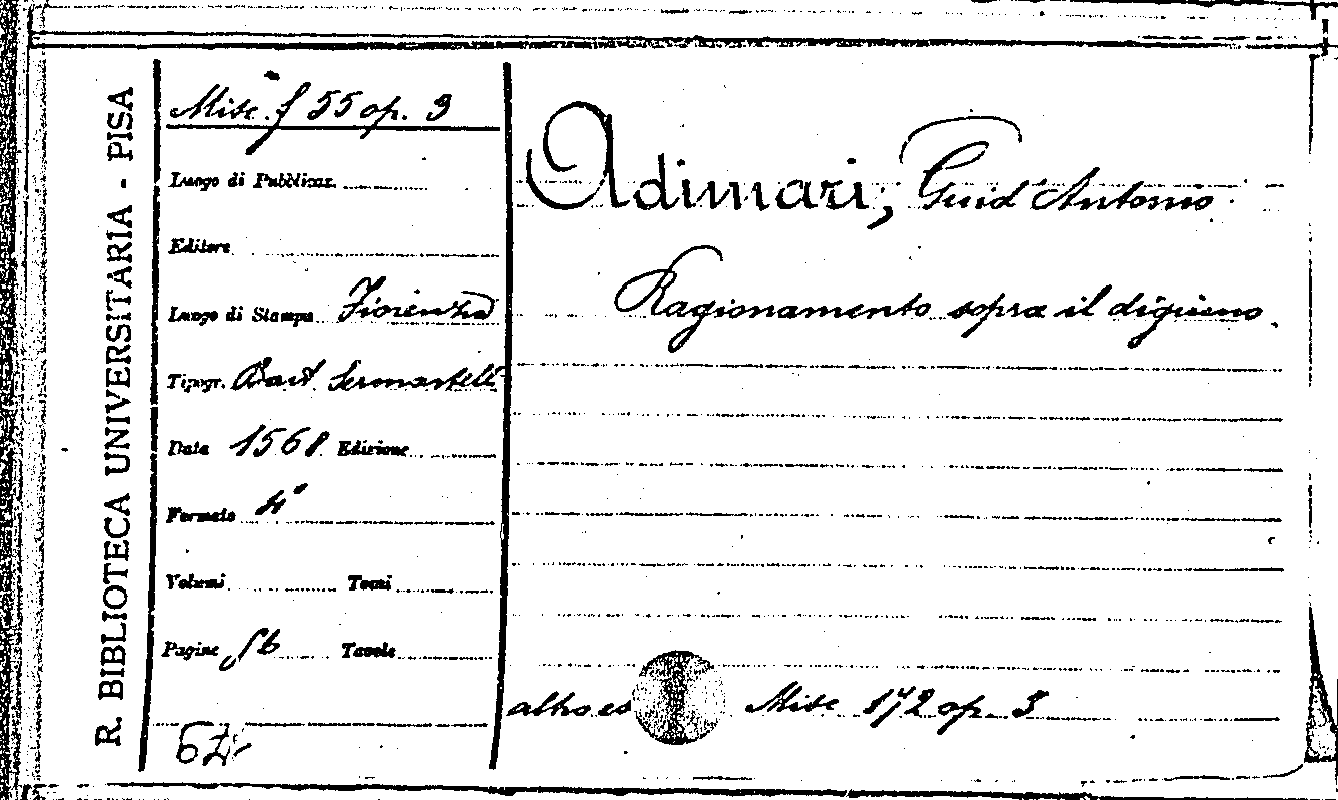 R. BIBLIOTECA UNIVERSITARIA - PISA
Misc. f 55 op. 9
Luogo di Pubblicaz.
Editore
Luogo di Stampa Fiorenza
Tipogr. Bart Sermartelli
Data 1568 Edizione
Formato 4°
Volumi Tomi
Pagine Tavole
Adimari, Guid'Antonio
Ragionamento sopra il digiuno.
altro es Misc 172 op. 3